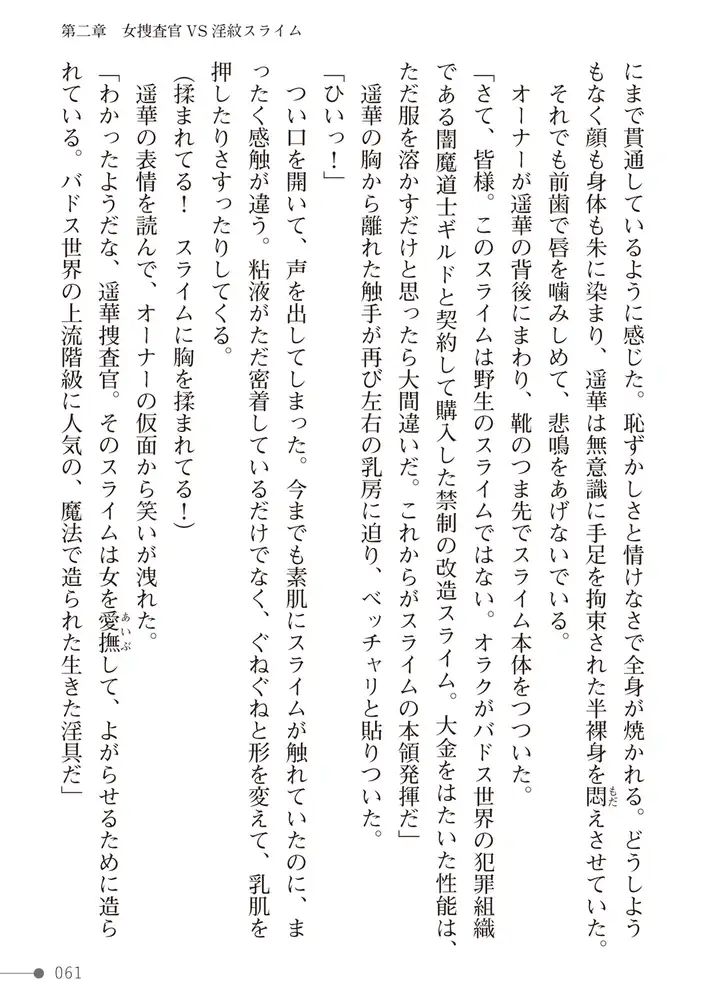 第二章　女捜査官 VS 淫紋スライム
にまで貫通しているように感じた。恥ずかしさと情けなさで全身が焼かれる。どうしよう
もなく顔も身体も朱に染まり、遥華は無意識に手足を拘束された半裸身を悶えさせていた。
もだ
それでも前歯で唇を噛みしめて、悲鳴をあげないでいる。
オーナーが遥華の背後にまわり、靴のつま先でスライム本体をつついた。
「さて、皆様。このスライムは野生のスライムではない。オラクがバドス世界の犯罪組織
である闇魔道士ギルドと契約して購入した禁制の改造スライム。大金をはたいた性能は、
ただ服を溶かすだけと思ったら大間違いだ。これからがスライムの本領発揮だ」
遥華の胸から離れた触手が再び左右の乳房に迫り、ベッチャリと貼りついた。
「ひいっ！」
つい口を開いて、声を出してしまった。今までも素肌にスライムが触れていたのに、ま
ったく感触が違う。粘液がただ密着しているだけでなく、ぐねぐねと形を変えて、乳肌を
押したりさすったりしてくる。
（揉まれてる！　スライムに胸を揉まれてる！）
遥華の表情を読んで、オーナーの仮面から笑いが洩れた。
「わかったようだな、遥華捜査官。そのスライムは女を愛撫して、よがらせるために造ら
あいぶ
れている。バドス世界の上流階級に人気の、魔法で造られた生きた淫具だ」
061